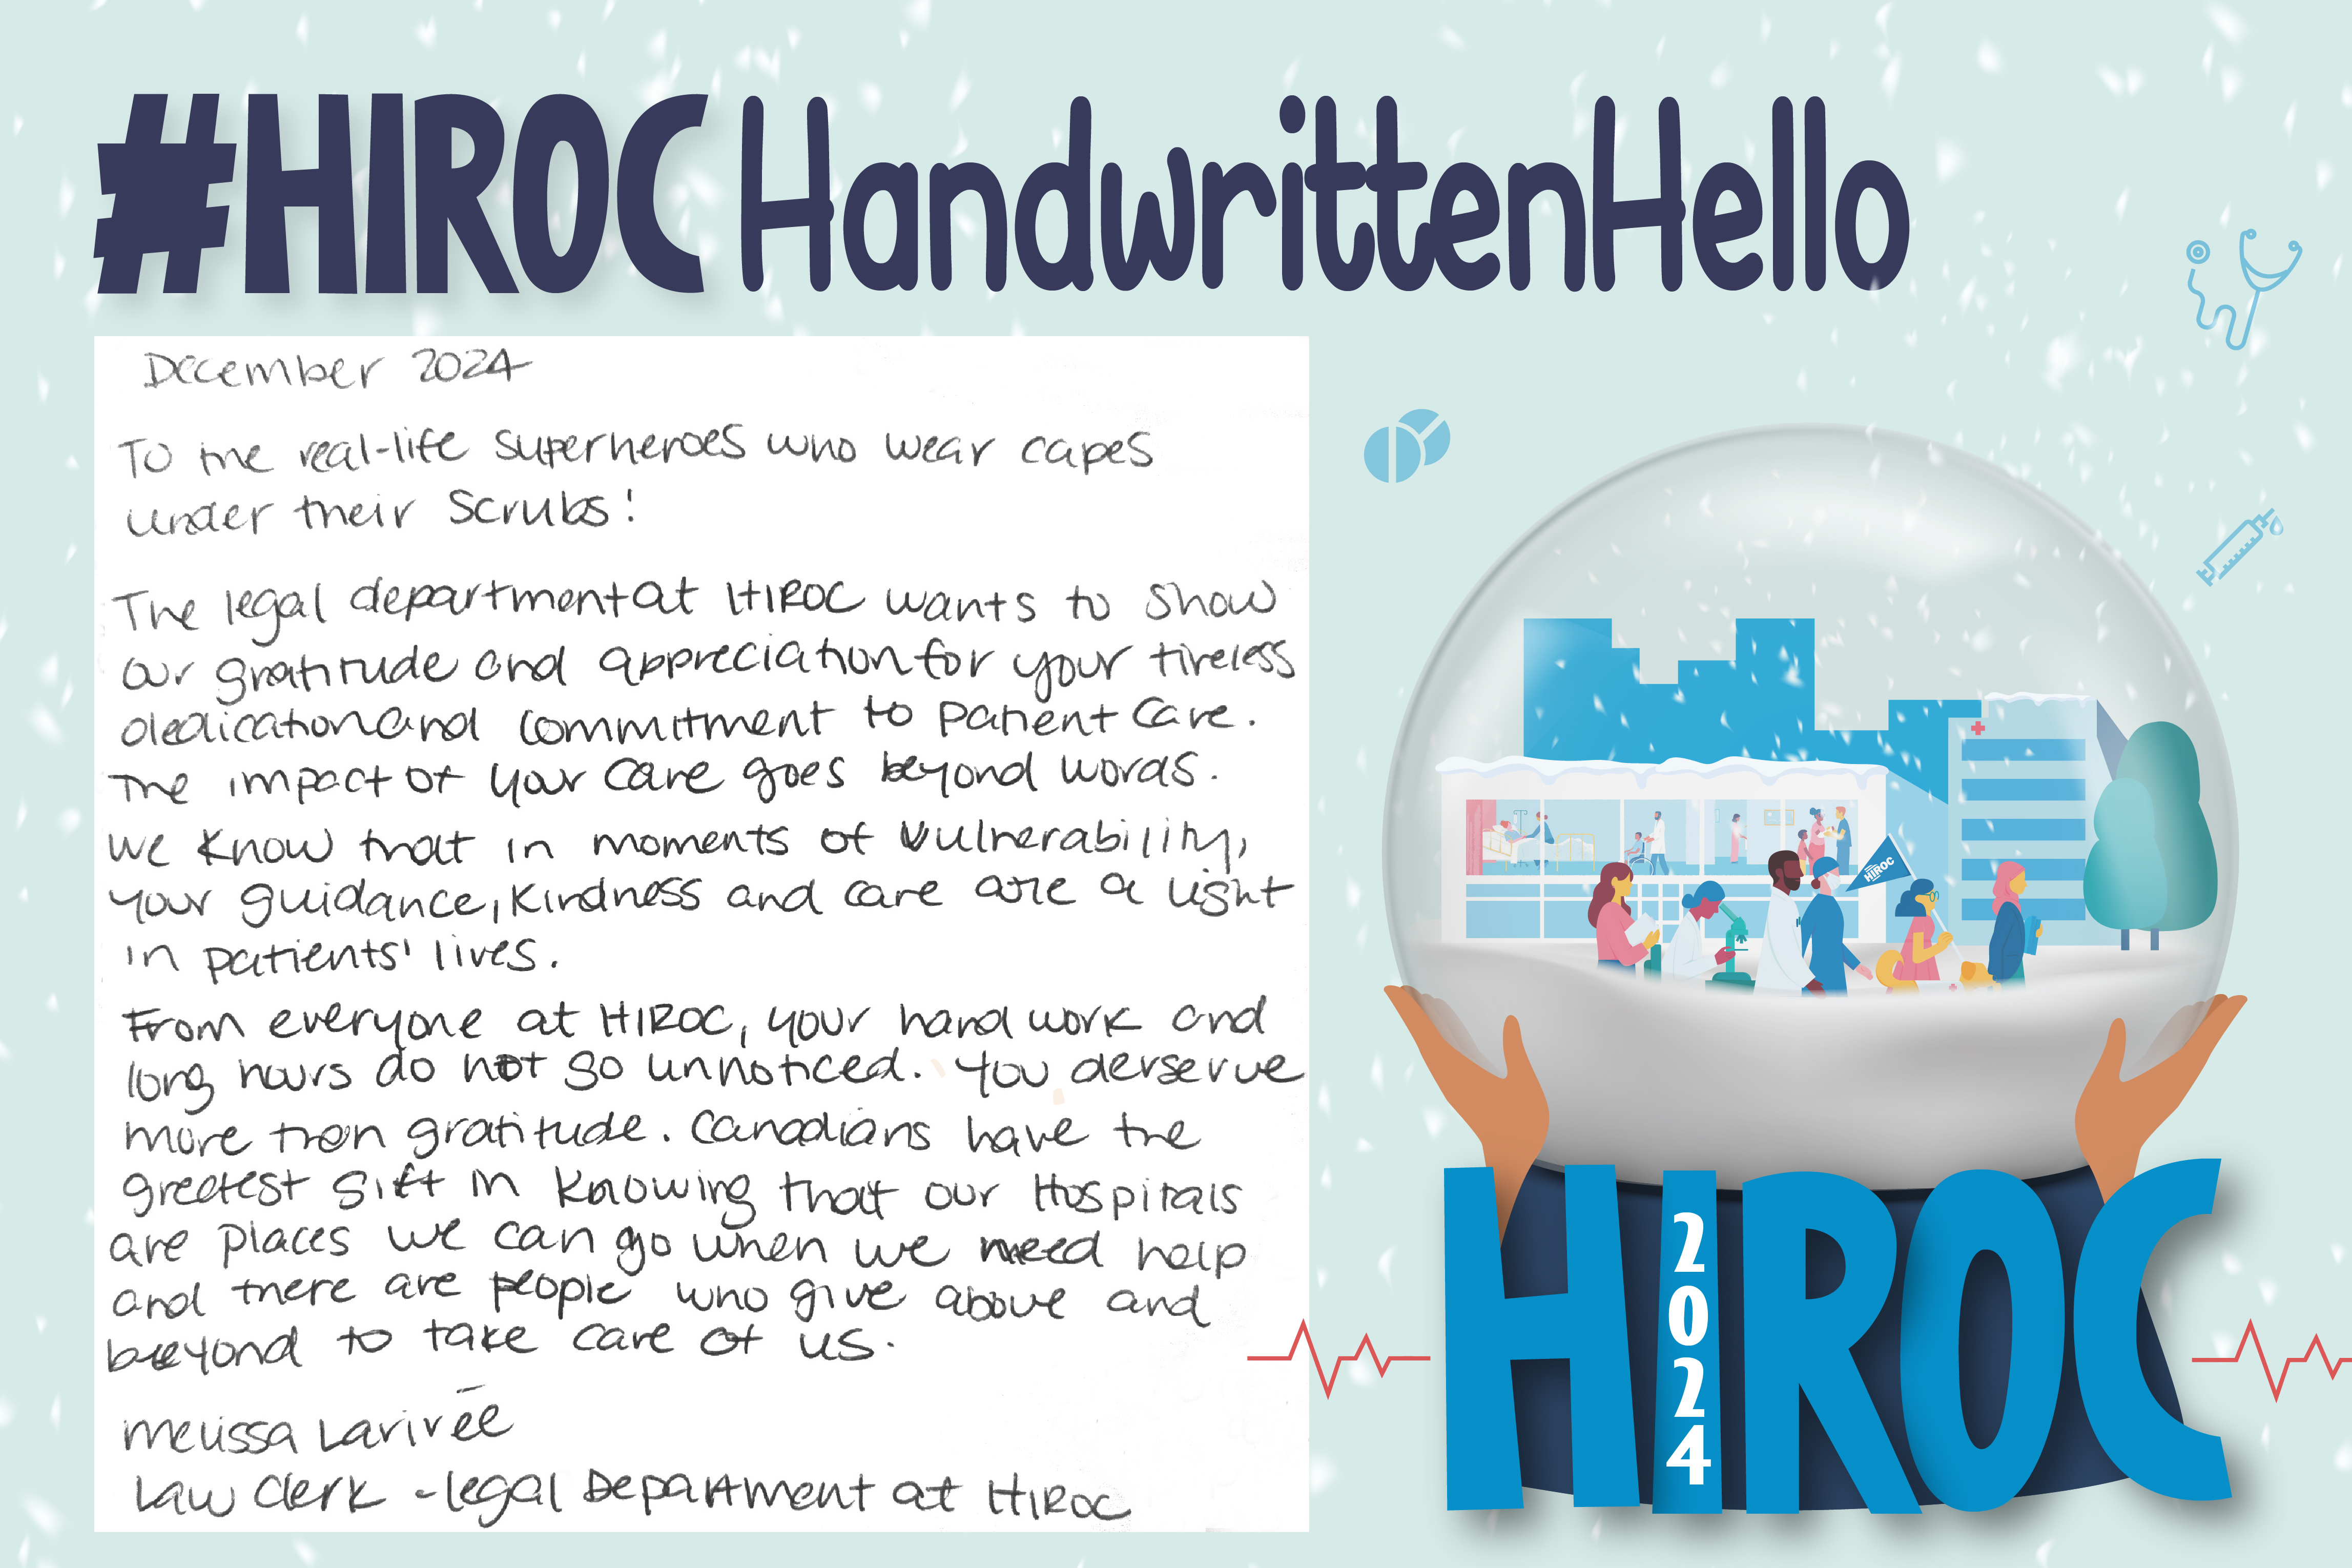 #HIROC HandwrittenHello
December 2024
To the real-life superheroes who wear capes
under their scrubs!
The legal department at HIROC wants to show
our gratitude and appreciation for your tireless
dedication and commitment to patient care.
The impact of your care goes beyond words.
We know that in moments of vulnerability,
your guidance, kindness and care are a light
in patients' lives.
From everyone at HIROC, your hard work and
long hours do not go unnoticed. You derserve
more than gratitude. Canadians have the
greatest gift in knowing that our Hospitals
are places we can go when we need help
and there are people who give above and
beyond to take care of us.
Melissa Larivée
Law Clerk - legal Department at HIROC
HIROC
HIROC
2024